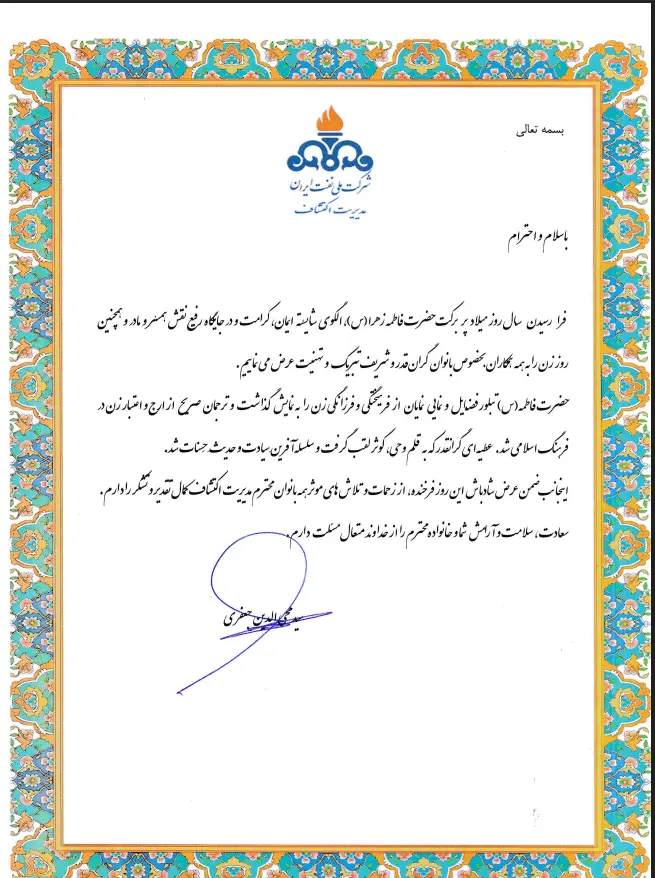 بسمه تعالی
شرکت ملی نفت ایران
مدیریت اکتشاف
باسلام و احترام
فرا رسیدن سال روز میلاد پر برکت حضرت فاطمه زهرا (س)، الگوی شایسته ایمان، کرامت و در جایگاه رفیع نقش همسر و مادر و همچنین
روز زن را به همه همکاران بخصوص بانوان گران قدر و شریف تبریک و تهنیت عرض می نماییم.
حضرت فاطمه (س) تبلور فضایل و نمایی نمایان از فریختگی و فرزانگی زن را به نمایش گذاشت و ترجمان صریح از ارج و اعتبار زن در
فرهنگ اسلامی شد. عطیه ای گرانقدر که به قلم وحی، کوثر لقب گرفت و سلسله آفرین سیادت و حدیث حسنات شد.
اینجانب ضمن عرض شادباش این روز فرخنده، از زحمات و تلاش های موثر همه بانوان محترم مدیریت اکتشاف کمال تقدیر و تشکر را دارم.
سعادت، سلامت و آرامش شما و خانواده محترم را از خداوند متعال مسئلت دارم.
سید محی الدین جعفری